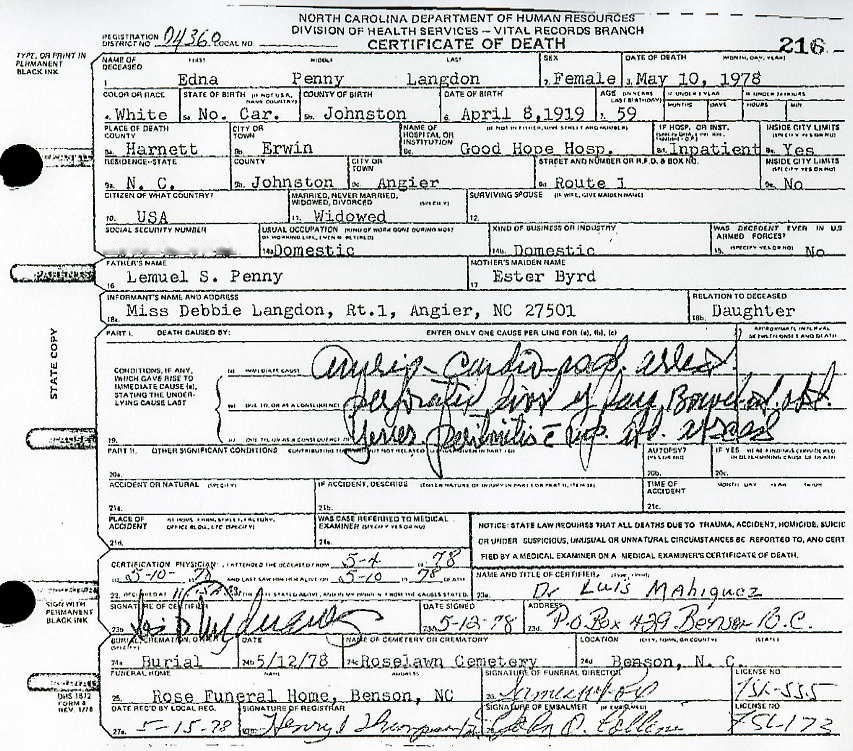 NORTH CAROLINA DEPARTMENT OF HUMAN RESOURCES
DIVISION OF HEALTH SERVICES — VITAL RECORDS BRANCH
CERTIFICATE OF DEATH
216
REGISTRATION DISTRICT NO. 04360 LOCAL NO.
TYPE, OR PRINT IN PERMANENT BLACK INK
NAME OF DECEASED FIRST MIDDLE LAST SEX DATE OF DEATH (MONTH, DAY, YEAR)
1. Edna Penny Langdon 2. Female 3. May 10, 1978
COLOR OR RACE STATE OF BIRTH (IF NOT U.S.A., NAME COUNTRY) COUNTY OF BIRTH DATE OF BIRTH AGE (IN YEARS LAST BIRTHDAY) IF UNDER 1 YEAR IF UNDER 24 HOURS
MONTHS DAYS HOURS MIN
4. White 5a. No. Car. 5b. Johnston 6. April 8, 1919 7. 59
PLACE OF DEATH COUNTY CITY OR TOWN NAME OF HOSPITAL OR INSTITUTION (IF NOT IN EITHER, GIVE STREET AND NUMBER) IF HOSP. OR INST. INSIDE CITY LIMITS (SPECIFY YES OR NO)
8a. Harnett 8b. Erwin 8c. Good Hope Hosp. 8d. Inpatient 8e. Yes
RESIDENCE-STATE COUNTY CITY OR TOWN STREET AND NUMBER OR R.F.D. & BOX NO. INSIDE CITY LIMITS (SPECIFY YES OR NO)
9a. N. C. 9b. Johnston 9c. Angier 9d. Route 1 9e. No
CITIZEN OF WHAT COUNTRY? MARRIED, NEVER MARRIED, WIDOWED, DIVORCED (SPECIFY) SURVIVING SPOUSE (IF WIFE, GIVE MAIDEN NAME)
10. USA 11. Widowed 12.
SOCIAL SECURITY NUMBER USUAL OCCUPATION (KIND OF WORK DONE DURING MOST OF WORKING LIFE, EVEN IF RETIRED) KIND OF BUSINESS OR INDUSTRY WAS DECEDENT EVER IN U.S ARMED FORCES? (SPECIFY YES OR NO)
14a Domestic 14b. Domestic 15. No
FATHER'S NAME MOTHER'S MAIDEN NAME
16 Lemuel S. Penny 17 Ester Byrd
INFORMANT'S NAME AND ADDRESS RELATION TO DECEASED
18a. Miss Debbie Langdon, Rt.1, Angier, NC 27501 18b. Daughter
STATE COPY
PART I. DEATH CAUSED BY: ENTER ONLY ONE CAUSE PER LINE FOR (a), (b), (c) APPROXIMATE INTERVAL BETWEEN ONSET AND DEATH
CONDITIONS, IF ANY, WHICH GAVE RISE TO IMMEDIATE CAUSE (a), STATING THE UNDERLYING CAUSE LAST
(a) IMMEDIATE CAUSE
(b) DUE TO, OR AS A CONSEQUENCE OF
19. (c) DUE TO, OR AS A CONSEQUENCE OF peritonitis
PART II. OTHER SIGNIFICANT CONDITIONS CONTRIBUTING AUTOPSY? (YES OR NO) IF YES WERE FINDINGS CONSIDERED IN DETERMINING CAUSE OF DEATH
20a. 20b. 20c.
ACCIDENT OR NATURAL (SPECIFY) IF ACCIDENT, DESCRIBE (ENTER NATURE OF INJURY IN PART I OR PART II, ITEM 18) TIME OF ACCIDENT MONTH DAY YEAR HOUR
21a. 21b. 21c.
PLACE OF ACCIDENT AT HOME, FARM, STREET, FACTORY, OFFICE BLDG., ETC (SPECIFY) WAS CASE REFERRED TO MEDICAL EXAMINER (SPECIFY YES OR NO)
21d. 21e.
NOTICE: STATE LAW REQUIRES THAT ALL DEATHS DUE TO TRAUMA, ACCIDENT, HOMICIDE, SUICID
OR UNDER SUSPICIOUS, UNUSUAL OR UNNATURAL CIRCUMSTANCES BE REPORTED TO, AND CERT
FIED BY A MEDICAL EXAMINER ON A MEDICAL EXAMINER'S CERTIFICATE OF DEATH.
CERTIFICATION PHYSICIAN: I ATTENDED THE DECEASED FROM 5-4 78
TO 5-10- 78 AND LAST SAW HIM/HER ALIVE ON 5-10 78
NAME AND TITLE OF CERTIFIER (TYPE, PRINT)
23a. Dr Luis Mahiquez
SIGN WITH PERMANENT BLACK INK
SIGNATURE OF CERTIFIER DATE SIGNED ADDRESS
23b. 5-12-78 23d. P.O. Box 429 Benson N.C.
BURIAL, CREMATION, DATE NAME OF CEMETERY OR CREMATORY LOCATION (CITY, TOWN, OR COUNTY) (STATE)
24a Burial 24b 5/12/78 24c Roselawn Cemetery 24d Benson, N. C.
FUNERAL HOME NAME ADDRESS SIGNATURE OF FUNERAL DIRECTOR LICENSE NO
25. Rose Funeral Home, Benson, NC 26.
DHS 1872 FORM 8 REV. 1/78
DATE REC'D BY LOCAL REG. SIGNATURE OF REGISTRAR SIGNATURE OF EMBALMER (IF EMBALMED) LICENSE NO
27a. 5-15-78 27b.